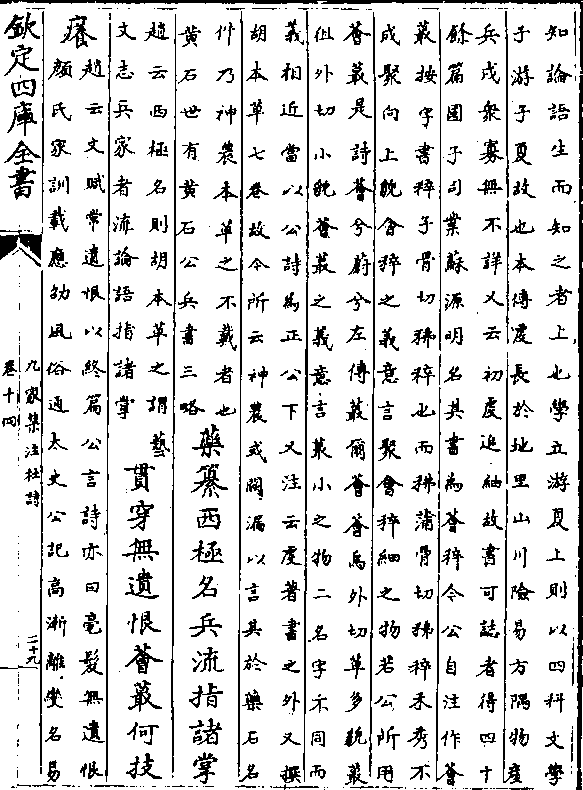 知論語生而知之者上也學立游夏上則以四科文學
子游子夏故也本傳虔長於地里山川險易方隅物產
兵戍衆寡無不詳又云初虔追紬故書可誌者得四十
餘篇國子司業蘇源明名其書為薈稡今公自注作薈
蕞按字書稡子骨切䅫稡也而䅫蒲骨切䅫稡禾秀不
成聚向上貌會稡之義意言聚會稡細之物若公所用
薈蕞是詩薈兮蔚兮左傳蕞爾薈薈烏外切草多貌蕞
徂外切小貌薈蕞之義意言蕞小之物二名字不同而
義相近當以公詩為正公下又注云虔著書之外又撰
胡本草七卷故今所云神農或闕漏以言其於藥石名
件乃神農本草之不載者也
黃石世有黃石公兵書三略
藥纂西極名兵流指諸掌
趙云西極名則胡本草之謂藝
文志兵家者流論語指諸掌
貫穿無遺恨薈蕞何技
癢
趙云文賦常遺恨以終篇公言詩亦曰毫髮無遺恨
顏氏家訓載應劭風俗通太史公記高漸離變名易
欽定四庫全書
九家集注杜詩
卷十四
二十九